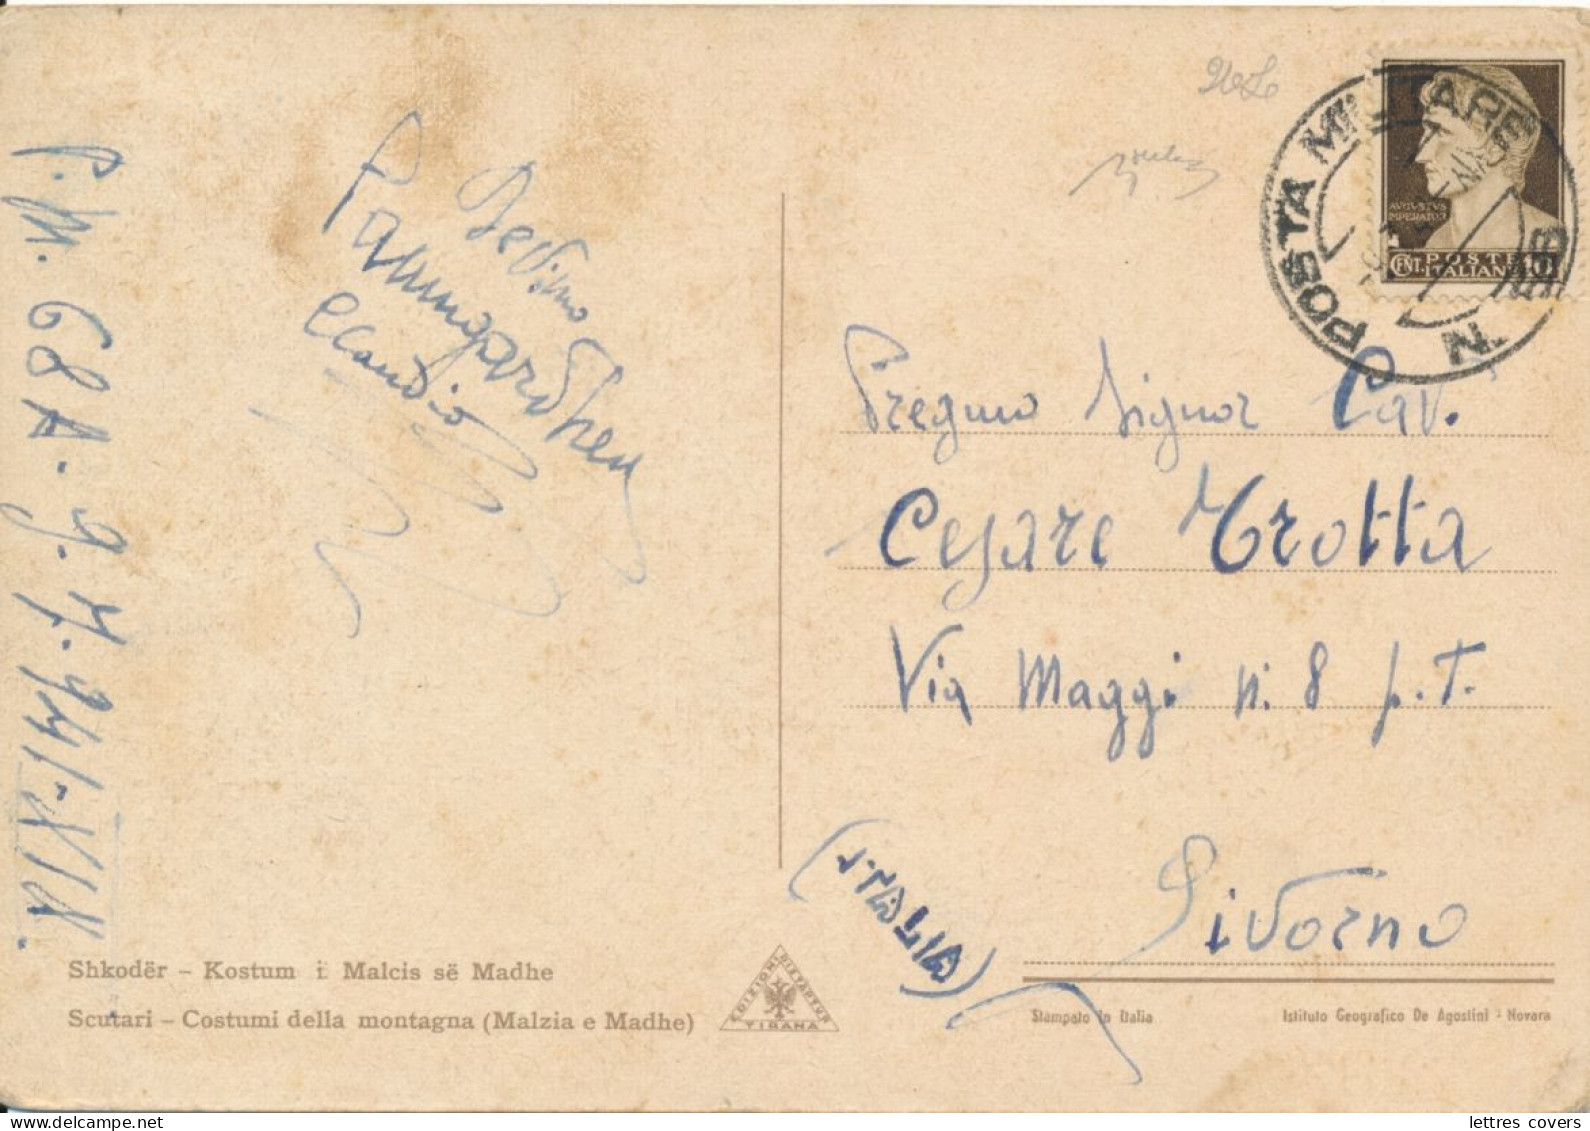 P. M. 68A. 9. 7. 941-XIX.
Claudio
POSTA MILITARE
N.
AVGVSTVS
IMPERATOR
CENT. 10
POSTE
ITALIANE
Pregmo Signor Cav.
Cesare Trotta
Via Maggi n. 8 p. T.
Livorno
(ITALIA)
Shkodër - Kostum i Malcis së Madhe
Scutari - Costumi della montagna (Malzia e Madhe)
EDIZIONI
TIRANA
Stampato in Italia
Istituto Geografico De Agostini - Novara
lettres covers